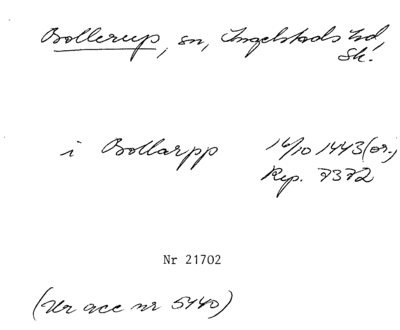 Bollerup, sn, Ingelstads hd,
Sk.
i Bollarpp 16/10 1443 (or.)
Rep. 7372
Nr 21702
(Ur acc nr 5440)